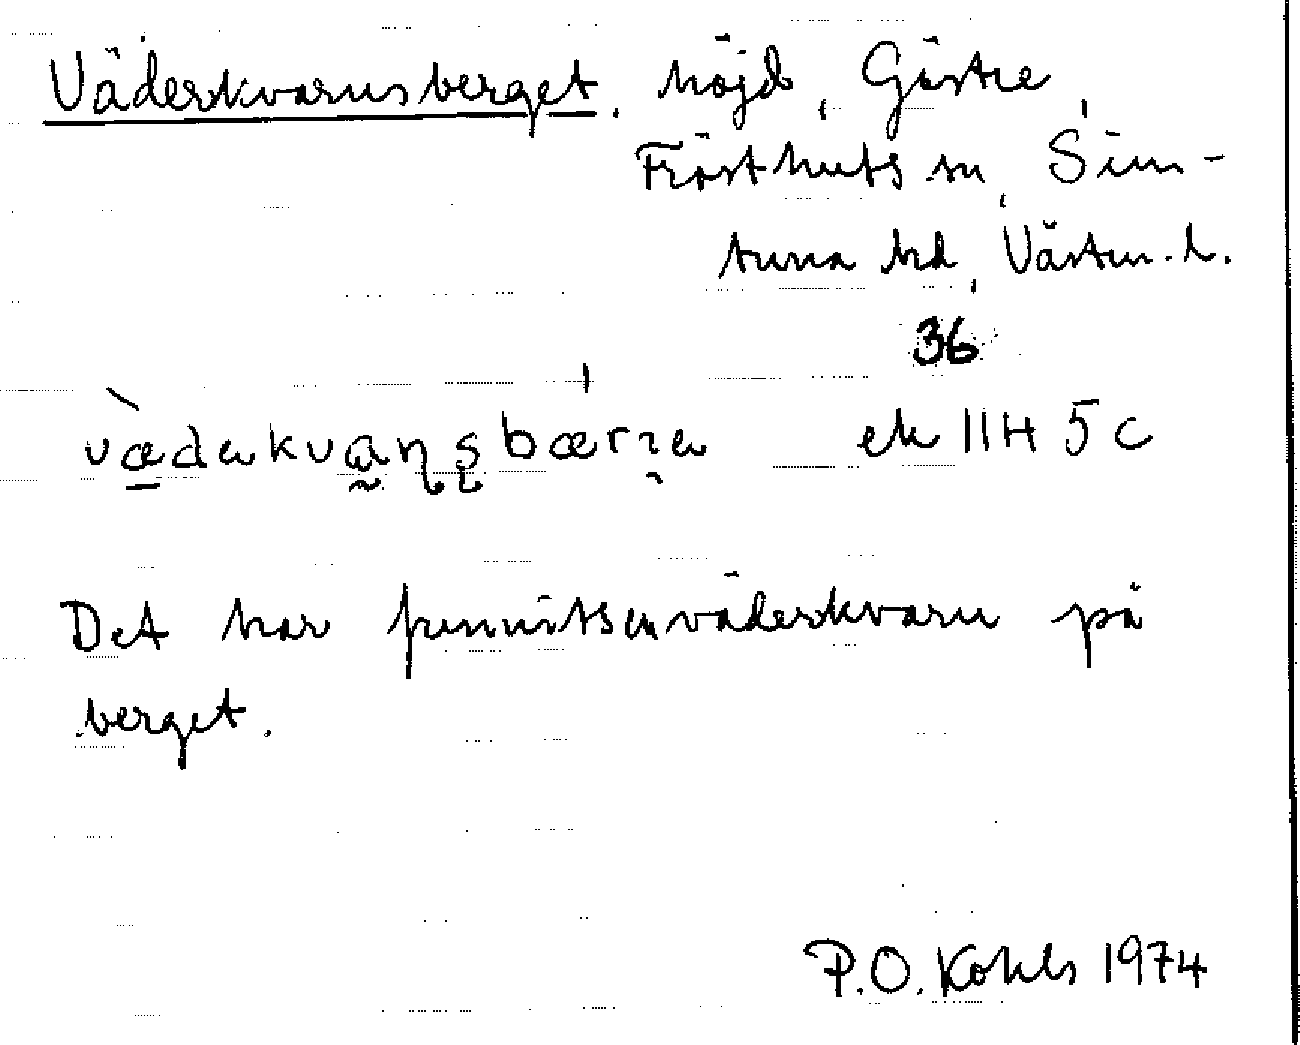 Väderkvarnsberget, höjd, Gästre,
Frösthults sn, Sim-
tuna hd, Västm. l.
36
vædəkvaɳʂbærjə ek 11H 5c
Det har funnits en väderkvarn på
berget.
P.O. Kohls 1974